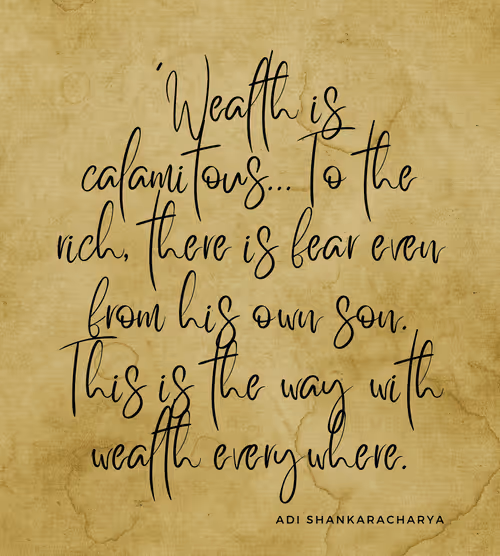 'Wealth is
calamitous... To the
rich, there is fear even
from his own son.
This is the way with
wealth everywhere.
ADI SHANKARACHARYA